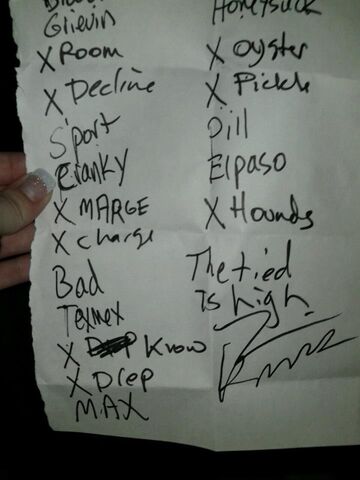 Grievin
X Room
X Decline
Sport
Cranky
X MARGE
X charge
Bad
Texmex
X Know
X
MAX
Honeysuck
X oyster
X Pickle
Dill
Elpaso
X Hounds
The tied
is high